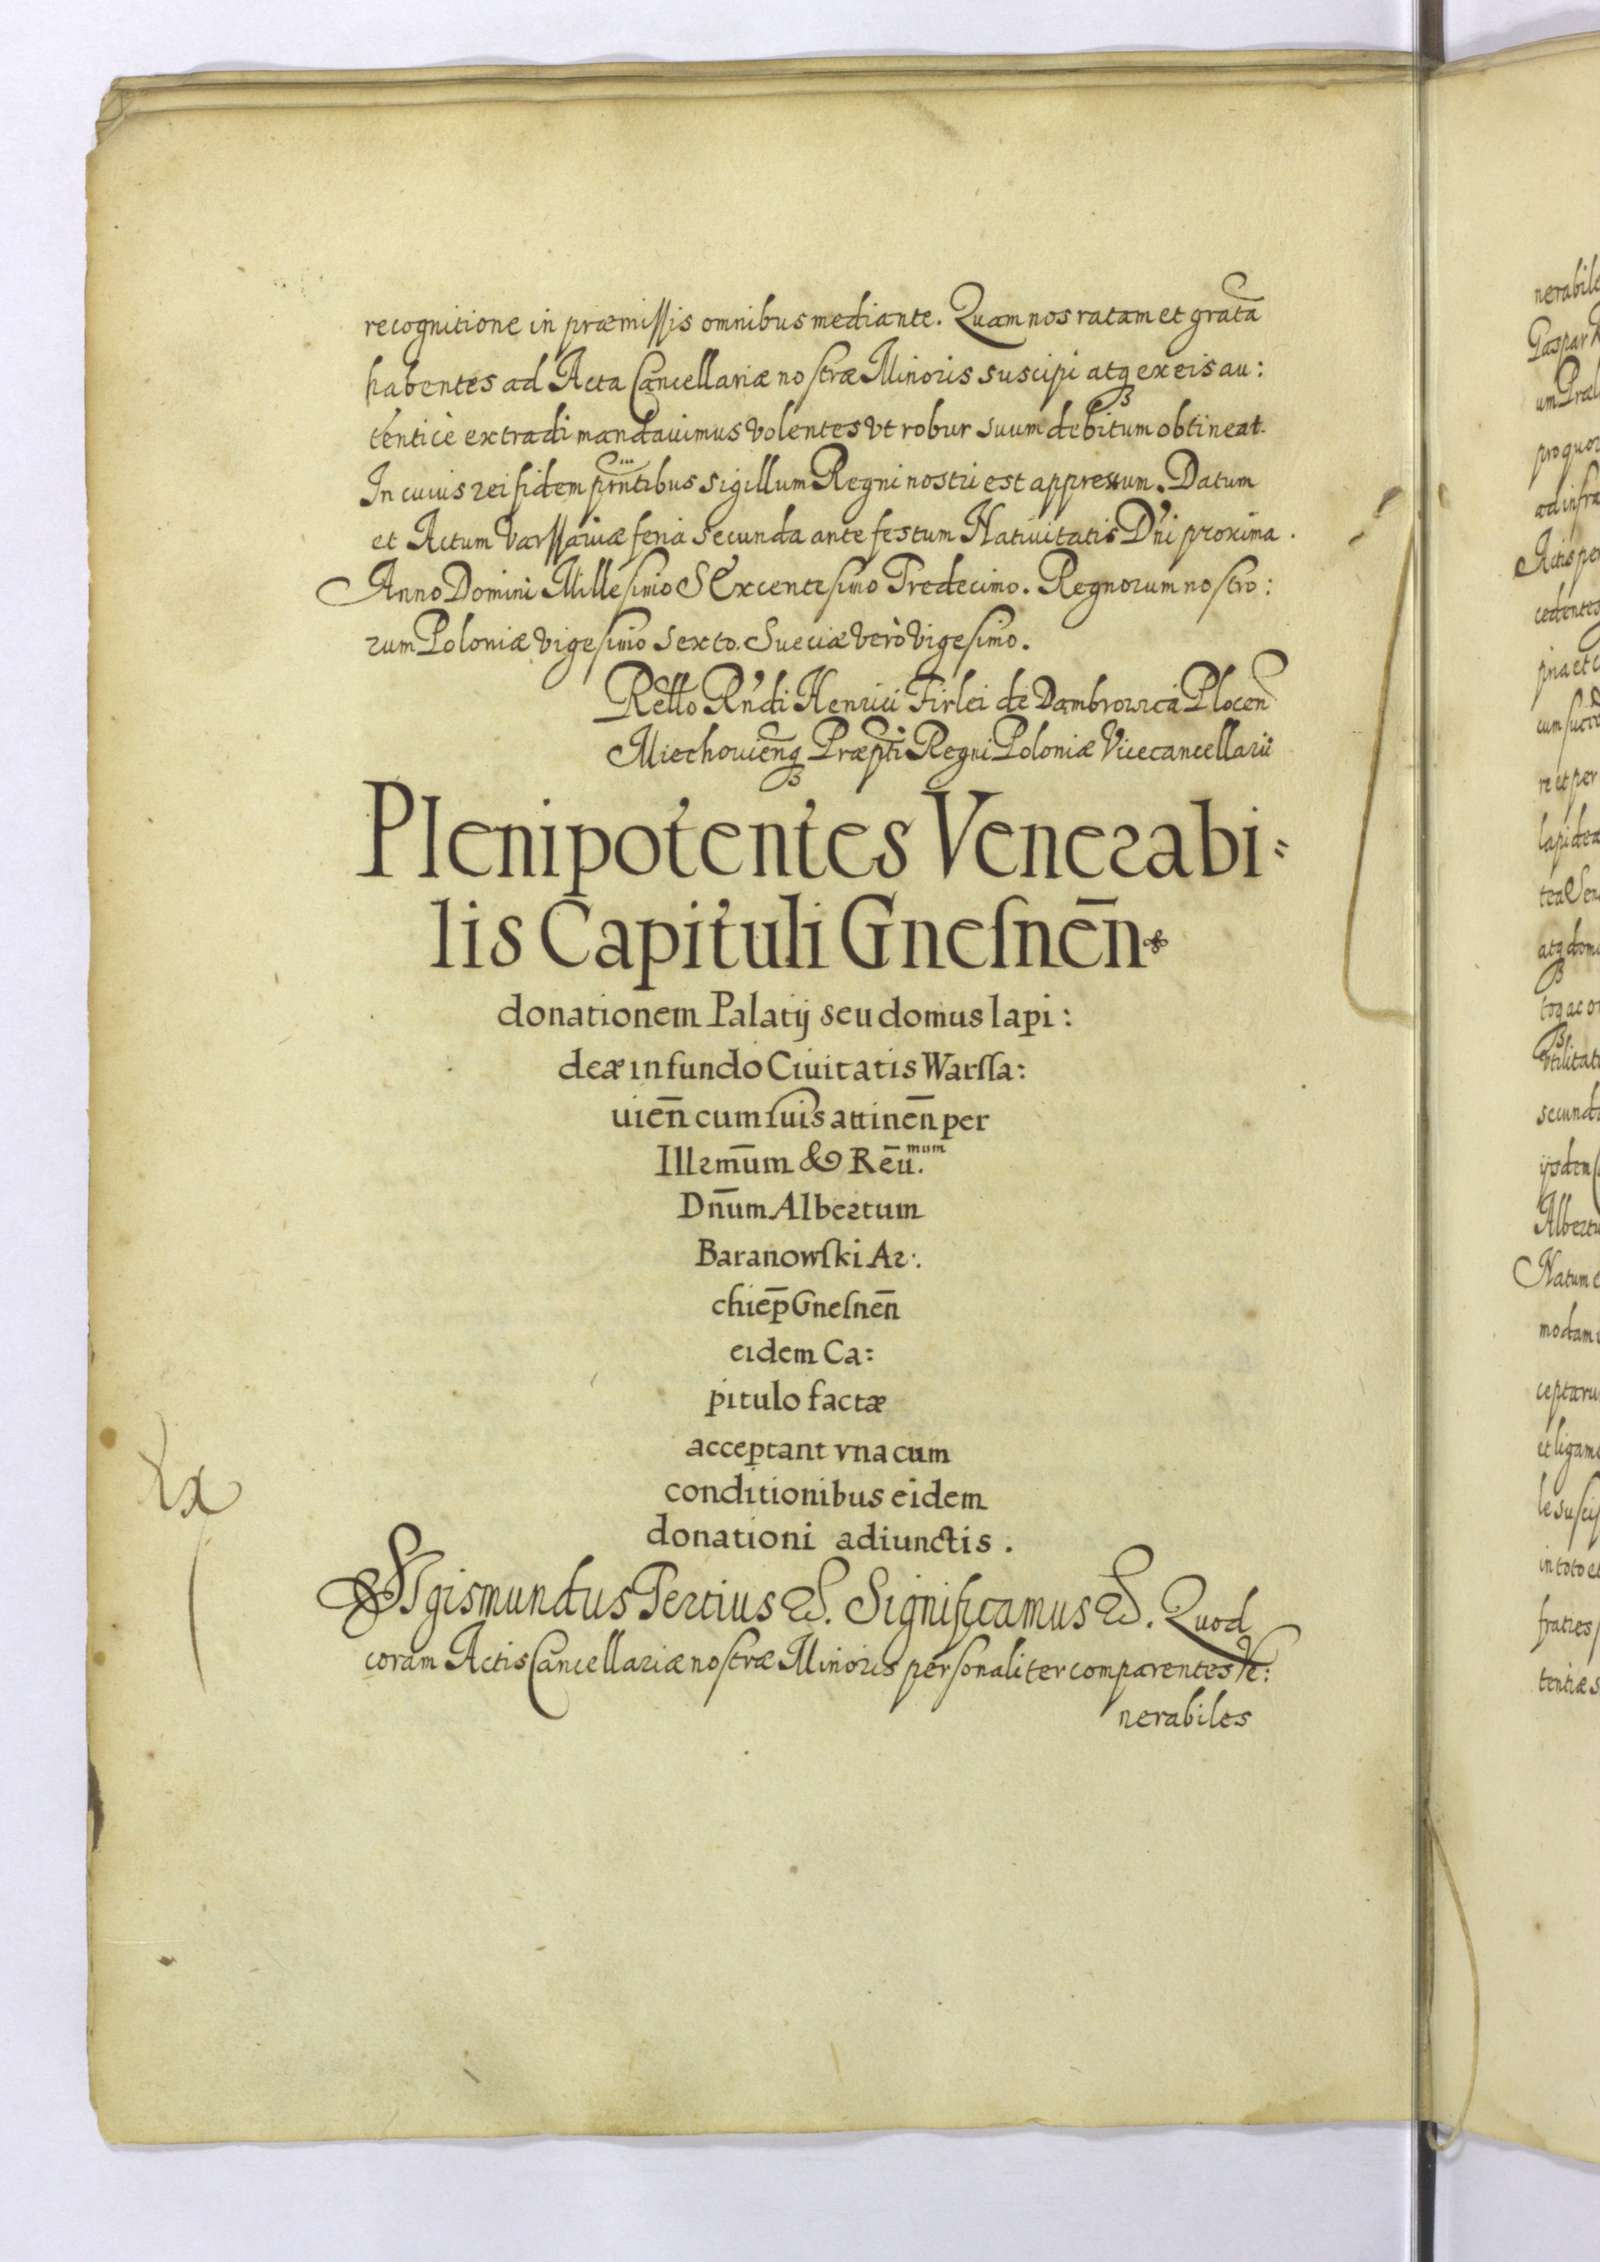 recognitione in præmissis omnibus mediante. Quam nos ratam et gratā
habentes ad Acta Cancellariæ nostræ Minoris suscipi atq3 ex eis au:
tenticè extradi mandauimus volentes vt robur suum debitum obtineat.
In cuius rei fidem prñtibus sigillum Regni nostri est appressum. Datum
et Actum Varssauiæ feria secunda ante festum Natiuitatis Dñi proxima.
Anno Domini Millesimo SExcentesimo Tredecimo. Regnorum nostro:
rum Poloniæ vigesimo sexto. Sueciæ verò vigesimo.
Rello Rñdi Henrici Firlei de Dambrowica Plocen̄
Miechouien̄q3 Præpti Regni Poloniæ Vicecancellarii
Plenipotentes Venerabi-
lis Capituli Gneſnēn
donationem Palatij seu domus lapi:
deæ in fundo Ciuitatis Warſſa:
uien̄ cum ſuis attinen̄ per
Illrm̄um & Reu̅.mum
Dn̄um Albertum
Baranowſki Ar:
chiep̄ Gneſnen̄
eidem Ca:
pitulo factæ
acceptant vna cum
conditionibus eidem
donationi adiunctis.
Ex
SIgismundus Tertius &. Significamus &. Quod
coram Actis Cancellariæ nostræ Minoris personaliter comparentes Ve:
nerabiles
nerabile
Gaspar
um Præl
pro quor
ad infra
Actis per
cedentes
re et per
lapidea
atq3 dom
vtilitat
secund
ijsdem
Albertu
Natum e
modam
ceptaru
et ligam
le suscip
in toto et
fratres
tentiæ s